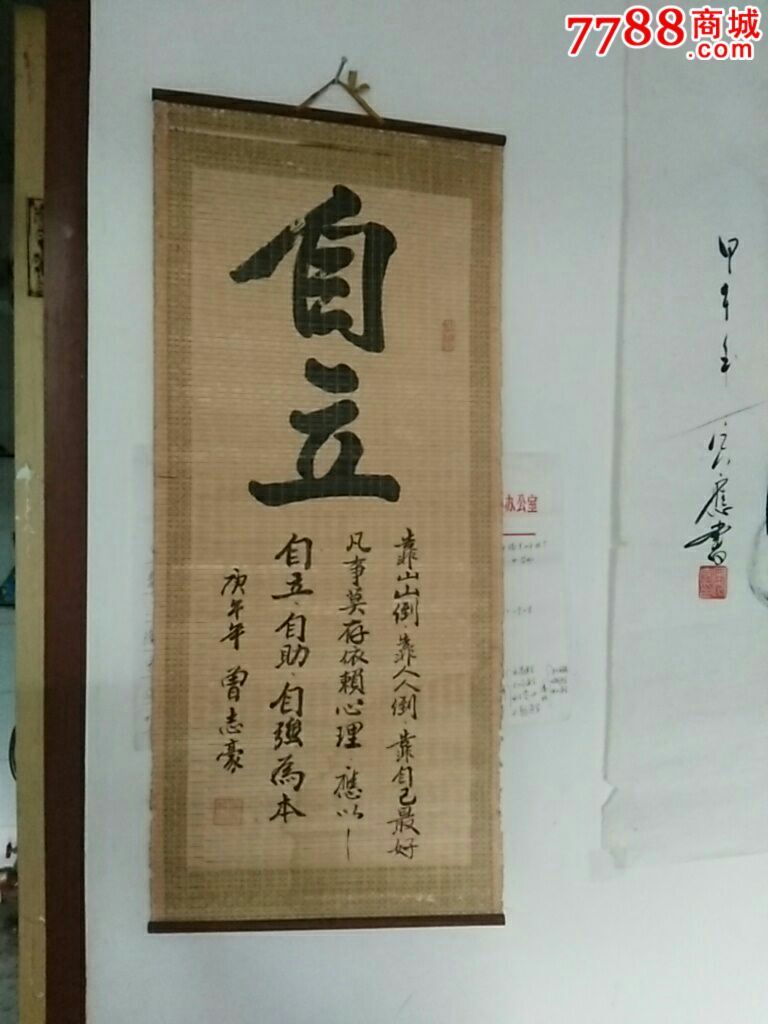 7788商城
.com
自立
靠山山倒·靠人人倒·靠自己最好
凡事莫存依賴心理·應以
自立·自助·自強為本
庚午年 曾志豪
甲午年
應書
办公室